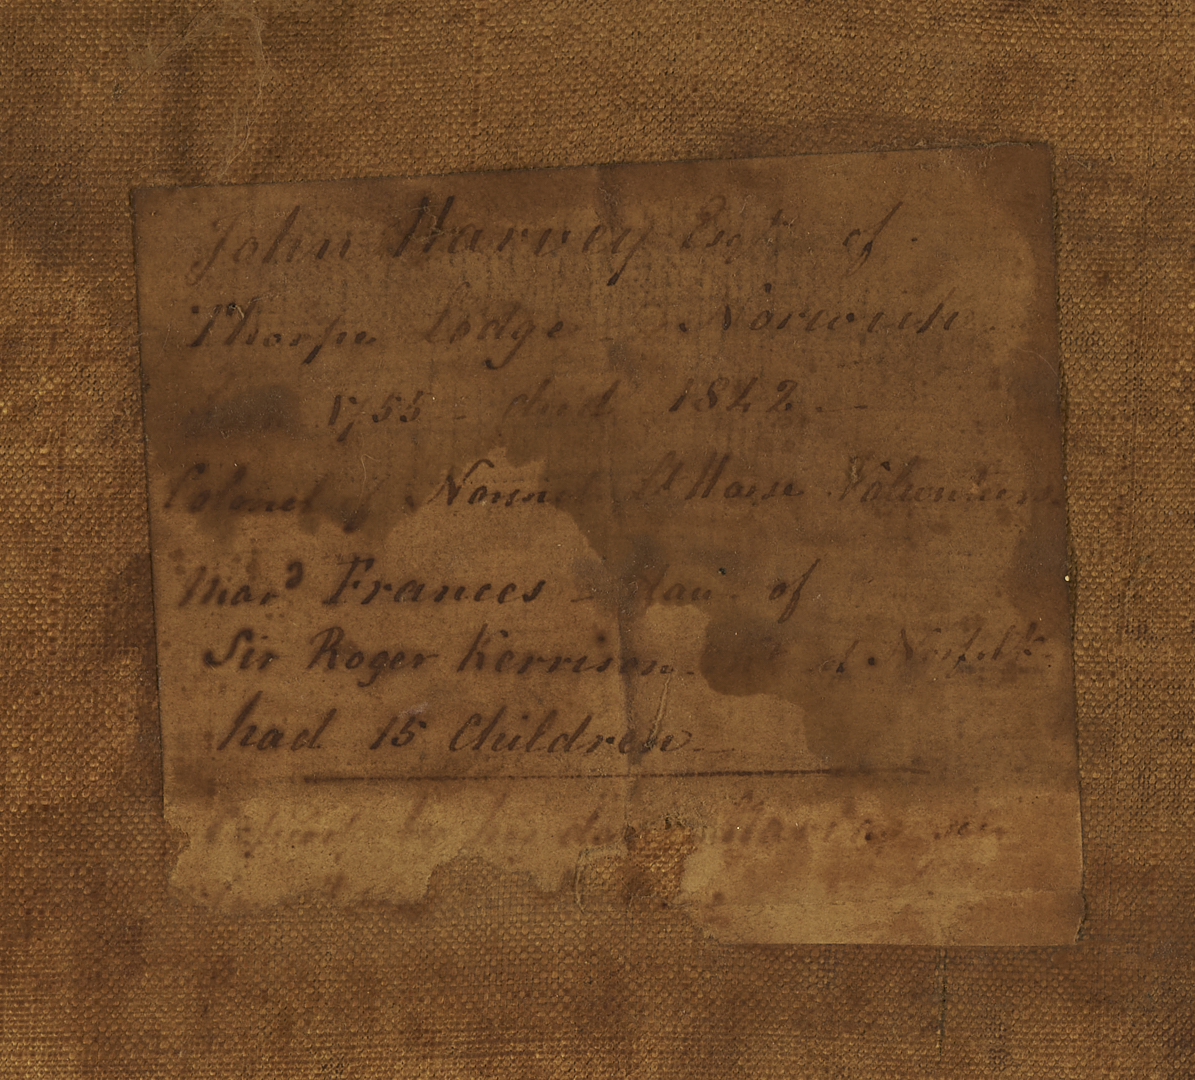 John Harvey Esqr. of
Thorpe Lodge - Norwich
born 1755 - died 1842 -
Colonel of Norwich Lt Horse Volunteers
Mard Frances - dau. of
Sir Roger Kerrison of Norfolk
had 15 Children
Copied by his